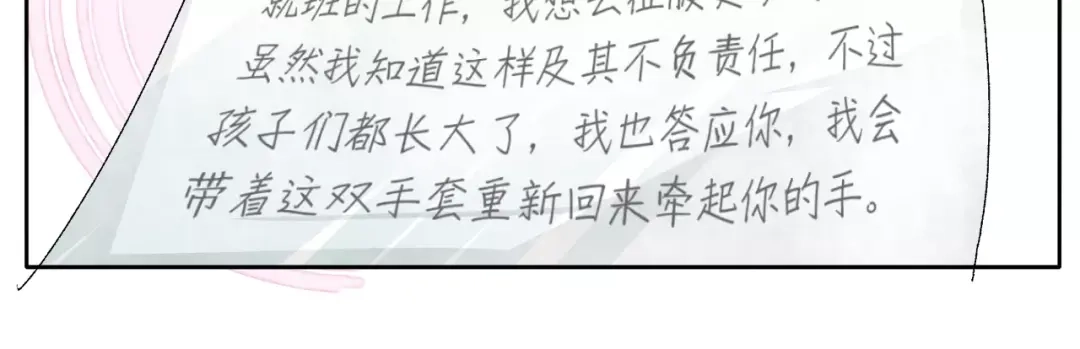 就班的工作，我想去征服更
虽然我知道这样及其不负责任，不过
孩子们都长大了，我也答应你，我会
带着这双手套重新回来牵起你的手。